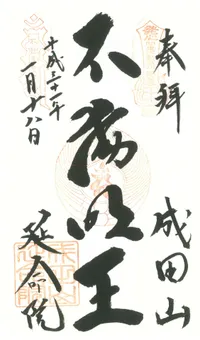 奉拜
成田山
不動明王
平成三十一年
一月十八日
延命院